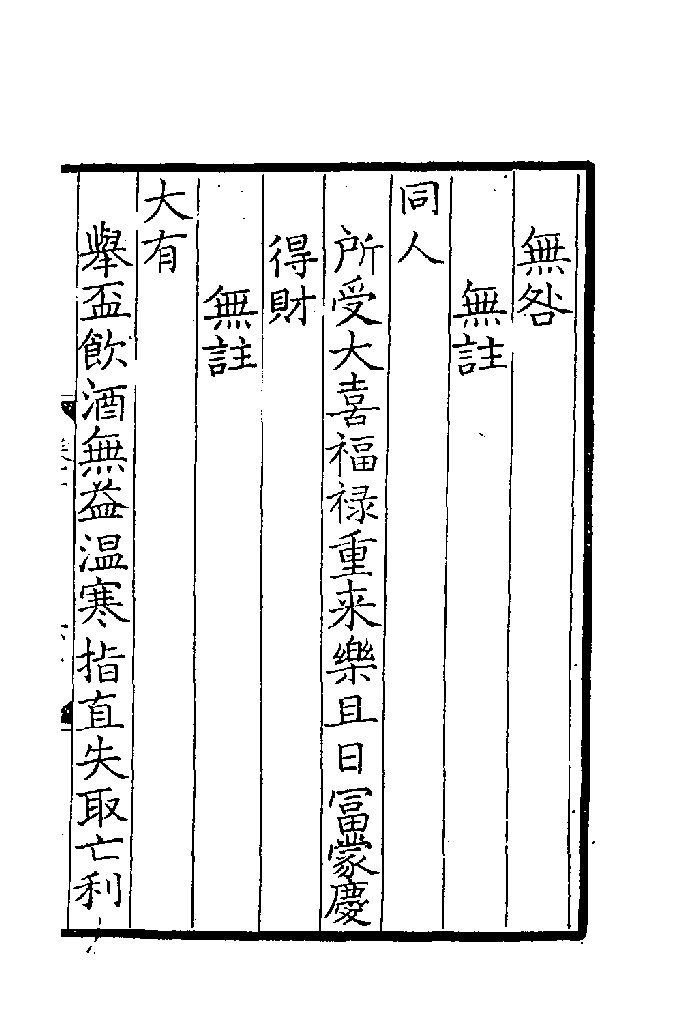 無咎
無註
同人
所受大喜福禄重来樂且日富蒙慶
得財
無註
大有
舉盃飲酒無益温寒指直失取亡利